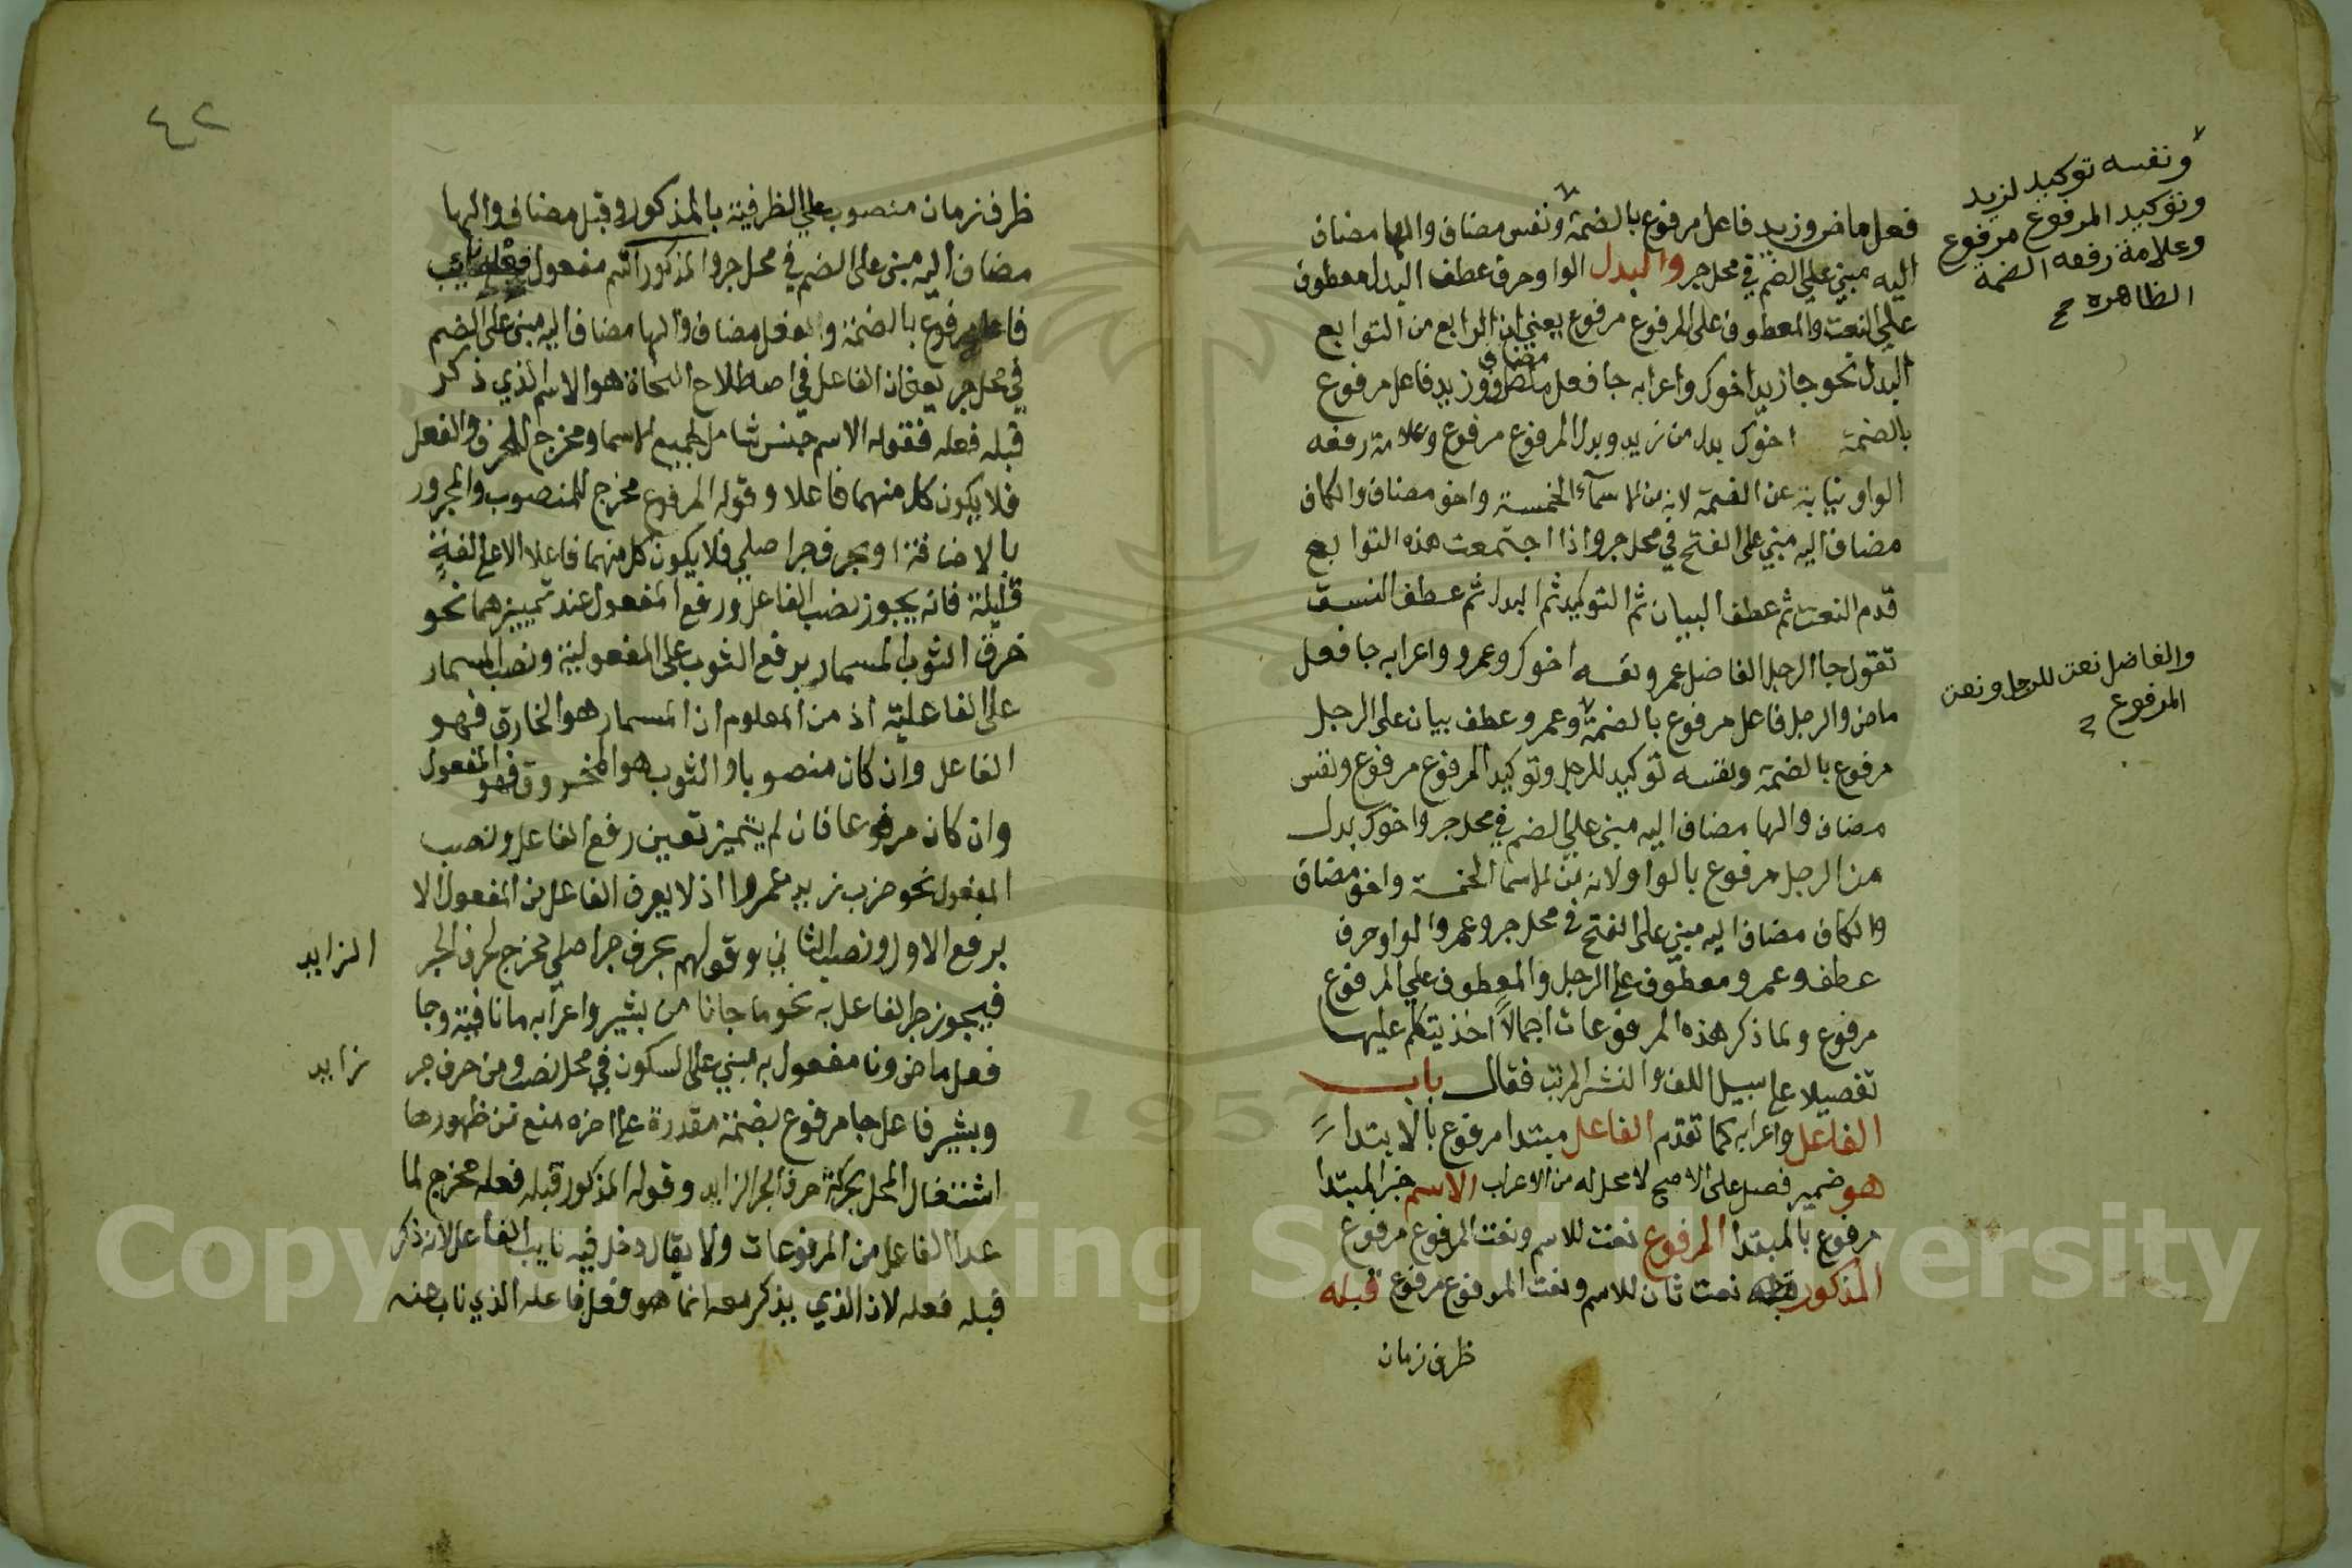 فعل ماض وزيد فاعل مرفوع بالضمة ونفس مضاف والها مضاف
اليه مبني علي الضم في محل جر والبدل الواو حرف عطف البدل معطوف
علي النعت والمعطوف على المرفوع مرفوع يعني ان الرابع من التوابع
البدل نحو جا زيد اخوك واعرابه جا فعل ماض وزيد فاعل مرفوع
بالضمة اخوك بدل من زيد وبدل المرفوع مرفوع وعلامة رفعه
الواو نيابة عن الضمة لانه من الاسمآء الخمسة واخو مضاف والكاف
مضاف اليه مبني على الفتح في محل جر واذا اجتمعت هذه التوابع
قدم النعت ثم عطف البيان ثم التوكيد ثم البدل ثم عطف النسق
تقول جا الرجل الفاضل عمرو نفسه اخوك وعمرو واعرابه جا فعل
ماض والرجل فاعل مرفوع بالضمة وعمرو عطف بيان على الرجل
مرفوع بالضمة ونفسه توكيد للرجل وتوكيد المرفوع مرفوع ونفس
مضاف والها مضاف اليه مبني علي الضم في محل جر واخوك بدل
من الرجل مرفوع بالواو لانه من الاسما الخمسة واخو مضاف
والكاف مضاف اليه مبني على الفتح في محل جر وعمرو الواو حرف
عطف وعمرو معطوف علي الرجل والمعطوف علي المرفوع
مرفوع ولما ذكر هذه المرفوعات اجمالاً اخذ يتكلم عليها
تفصيلا علي سبيل اللف والنشر المرتب فقال باب
الفاعل واعرابه كما تقدم الفاعل مبتدا مرفوع بالابتدا
هو ضمير فصل على الاصح لا محل له من الاعراب الاسم خبر المبتدا
مرفوع بالمبتدا المرفوع نعت للاسم ونعت المرفوع مرفوع
المذكور نعت ثان للاسم ونعت المرفوع مرفوع قبله
ظرف زمان
ونفسه توكيد لزيد
وتوكيد المرفوع مرفوع
وعلامة رفعه الضمة
الظاهره
والفاضل نعت للرجل ونعت
المرفوع
٤٢
ظرف زمان منصوب علي الظرفية بالمذكور وقبل مضاف والها
مضاف اليه مبني على الضم في محل جر والمذكور اسم مفعول نايب
فاعله مرفوع بالضمة والفعل مضاف والها مضاف اليه مبني على الضم
في محل جر يعني ان الفاعل في اصطلاح النحاة هو الاسم الذي ذكر
قبله فعله فقوله الاسم جنس شامل لجميع الاسما ومخرج للحرف والفعل
فلا يكون كل منهما فاعلا وقوله المرفوع مخرج للمنصوب والمجرور
بالاضافة او بحرف جر اصلي فلا يكون كل منهما فاعلا الا علي لغة
قليلة فانه يجوز نصب الفاعل ورفع المفعول عند تمييزهما نحو
خرق الثوب المسمار برفع الثوب على المفعولية ونصب المسمار
على الفاعلية اذ من المعلوم ان المسمار هو الخارق فهو
الفاعل وان كان منصوبا والثوب هو المخروق فهو المفعول
وان كان مرفوعا فان لم يتميز تعين رفع الفاعل ونصب
المفعول نحو ضرب زيد عمروا اذ لا يعرف الفاعل من المفعول الا
برفع الاول ونصب الثاني وقولهم بحرف جر اصلي مخرج لحرف الجر الزايد
فيجوز جر الفاعل به نحو ما جانا من بشير واعرابه ما نافية وجا
فعل ماض ونا مفعول به مبني على السكون في محل نصب ومن حرف جر زايد
وبشير فاعل جا مرفوع بضمة مقدرة علي اخره منع من ظهورها
اشتغال المحل بحركة حرف الجر الزايد وقوله المذكور قبله فعله مخرج لما
عدا الفاعل من المرفوعات ولا يقال دخل فيه نايب الفاعل لانه ذكر
قبله فعله لان الذي يذكر معه انما هو فعل فاعله الذي ناب عنه
1957
Copyright © King Saud University